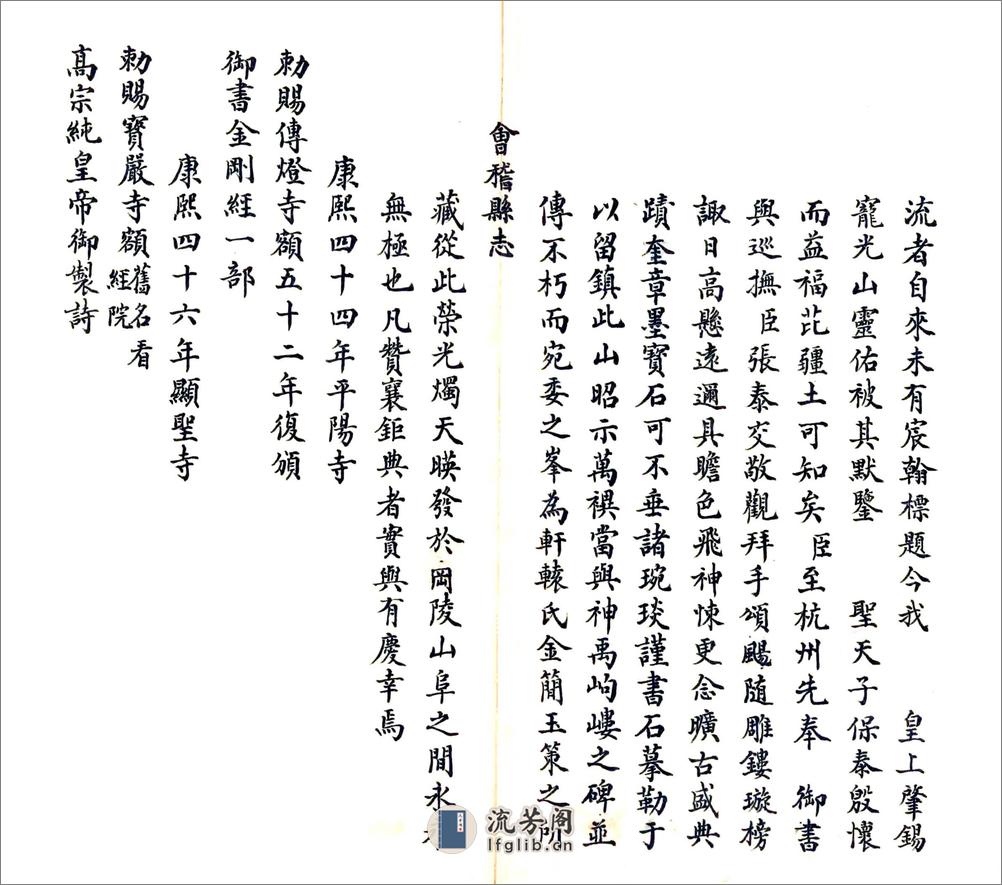 流者自來未有宸翰標題今我　皇上肇錫
寵光山靈佑被其默鑒　聖天子保泰殷懷
而益福芘疆土可知矣臣至杭州先奉　御書
與巡撫臣張泰交敬觀拜手頌颺隨雕鏤璇榜
諏日高懸遠邇具瞻色飛神悚更念曠古盛典
蹟奎章墨寶石可不垂諸琬琰謹書石摹勒于
以留鎮此山昭示萬禩當與神禹岣嶁之碑並
傳不朽而宛委之峯為軒轅氏金簡玉策之所
會稽縣志
藏從此榮光燭天暎發於岡陵山阜之間永
無極也凡贊襄鉅典者實與有慶幸焉
康熙四十四年平陽寺
勅賜傳燈寺額五十二年復頒
御書金剛經一部
康熙四十六年顯聖寺
勅賜寶嚴寺額舊名看經院
高宗純皇帝御製詩
流芳阁
lfglib.cn